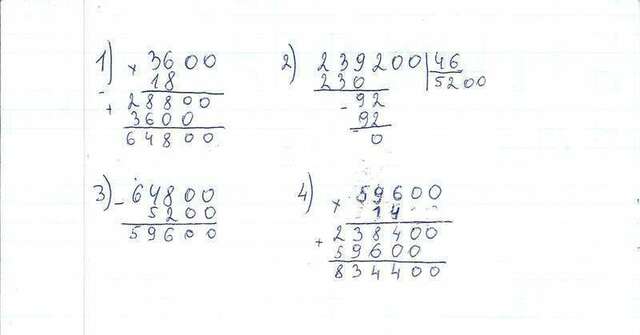 1) × 3600
18
+ 28800
3600
64800
2) 239200 | 46
230 5200
- 92
92
0
3) - 64800
5200
59600
4) × 59600
14
+ 238400
59600
834400